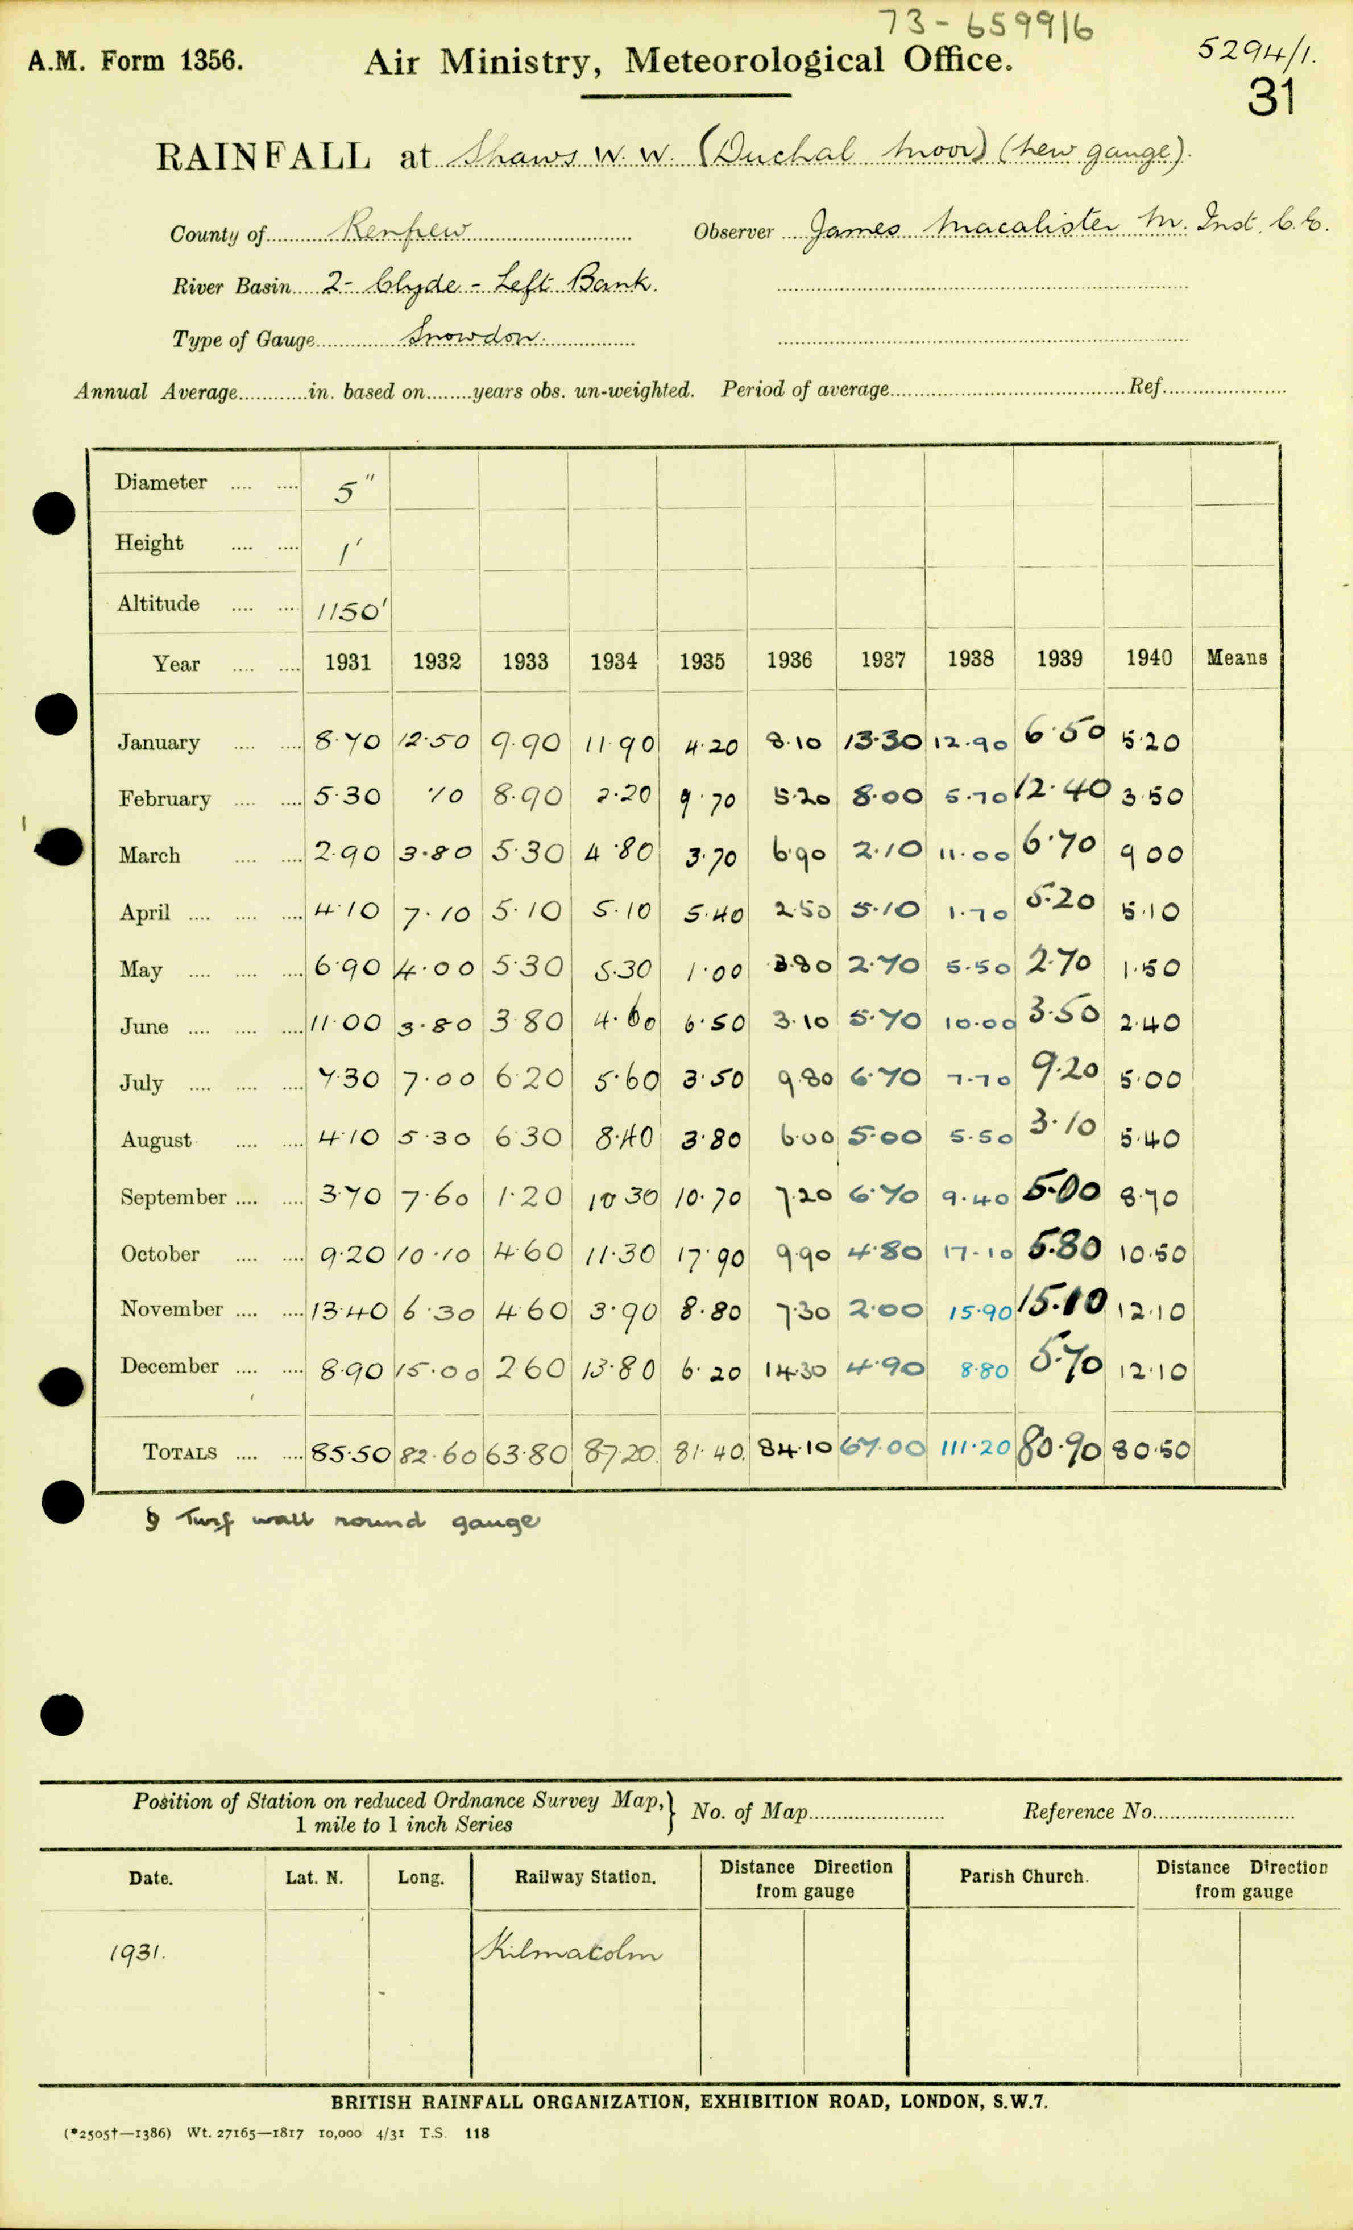 73-659916
A.M. Form 1356. Air Ministry, Meteorological Office. 5294/1.
31
RAINFALL at Shaws W. W. (Duchal Moor) (New gauge).
County of Renfrew Observer James Macalister M. Inst. C.E.
River Basin 2- Clyde - Left Bank.
Type of Gauge Snowdon.
Annual Average in. based on years obs. un-weighted. Period of average Ref.
Diameter 5"
Height 1'
Altitude 1150'
Year 1931 1932 1933 1934 1935 1936 1937 1938 1939 1940 Means
January 8·70 12·50 9·90 11·90 4·20 8·10 13·30 12·90 6·50 5·20
February 5·30 ·10 8·90 2·20 9·70 5·20 8·00 5·70 12·40 3·50
March 2·90 3·80 5·30 4·80 3·70 6·90 2·10 11·00 6·70 9·00
April 4·10 7·10 5·10 5·10 5·40 2·50 5·10 1·70 5·20 5·10
May 6·90 4·00 5·30 5·30 1·00 3·80 2·70 5·50 2·70 1·50
June 11·00 3·80 3·80 4·60 6·50 3·10 5·70 10·00 3·50 2·40
July 7·30 7·00 6·20 5·60 3·50 9·80 6·70 7·70 9·20 5·00
August 4·10 5·30 6·30 8·40 3·80 6·00 5·00 5·50 3·10 5·40
September 3·70 7·60 1·20 10·30 10·70 7·20 6·70 9·40 5·00 8·70
October 9·20 10·10 4·60 11·30 17·90 9·90 4·80 17·10 5·80 10·50
November 13·40 6·30 4·60 3·90 8·80 7·30 2·00 15·90 15·10 12·10
December 8·90 15·00 2·60 13·80 6·20 14·30 4·90 8·80 5·70 12·10
TOTALS 85·50 82·60 63·80 87·20 81·40 84·10 67·00 111·20 80·90 80·50
§ Turf wall round gauge
Position of Station on reduced Ordnance Survey Map, 1 mile to 1 inch Series } No. of Map Reference No.
Date. Lat. N. Long. Railway Station. Distance Direction from gauge Parish Church. Distance Direction from gauge
1931. Kilmacolm
BRITISH RAINFALL ORGANIZATION, EXHIBITION ROAD, LONDON, S.W.7.
(*2505†—1386) Wt. 27165—1817 10,000 4/31 T.S. 118